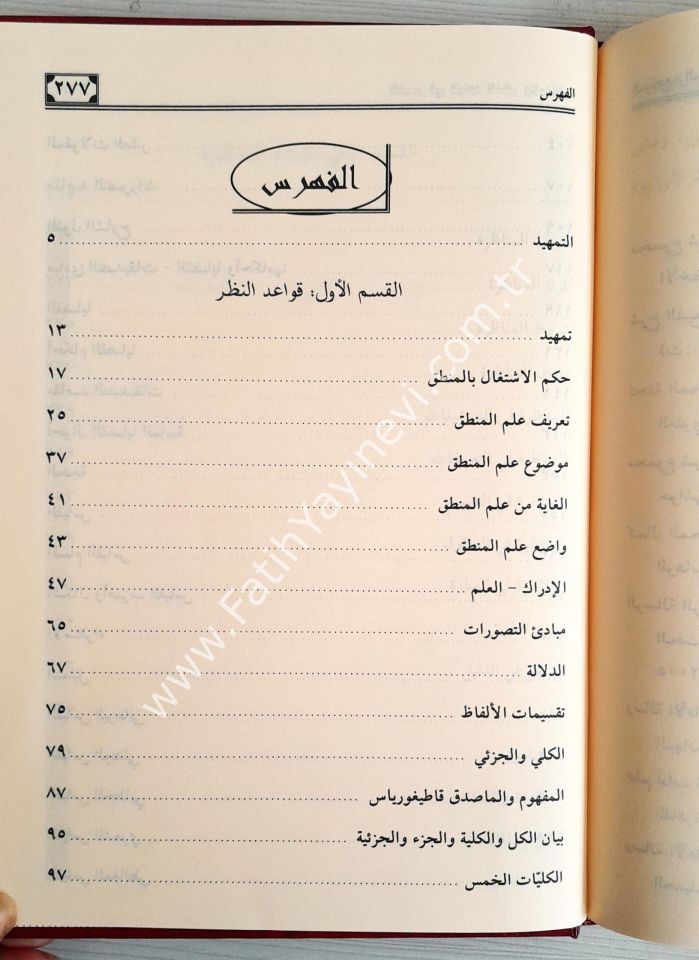 الفهرس ٢٧٧
الفهرس
التمهيد ........ ٥
القسم الأول: قواعد النظر
تمهيد ........ ١٣
حكم الاشتغال بالمنطق ........ ١٧
تعريف علم المنطق ........ ٢٥
موضوع علم المنطق ........ ٣٧
الغاية من علم المنطق ........ ٤١
واضع علم المنطق ........ ٤٣
الإدراك - العلم ........ ٤٧
مبادئ التصورات ........ ٦٥
الدلالة ........ ٦٧
تقسيمات الألفاظ ........ ٧٥
الكلي والجزئي ........ ٧٩
المفهوم والماصدق قاطيغورياس ........ ٨٧
بيان الكل والكلية والجزء والجزئية ........ ٩٥
الكليّات الخمس ........ ٩٧
www.FatihYayinevi.com.tr